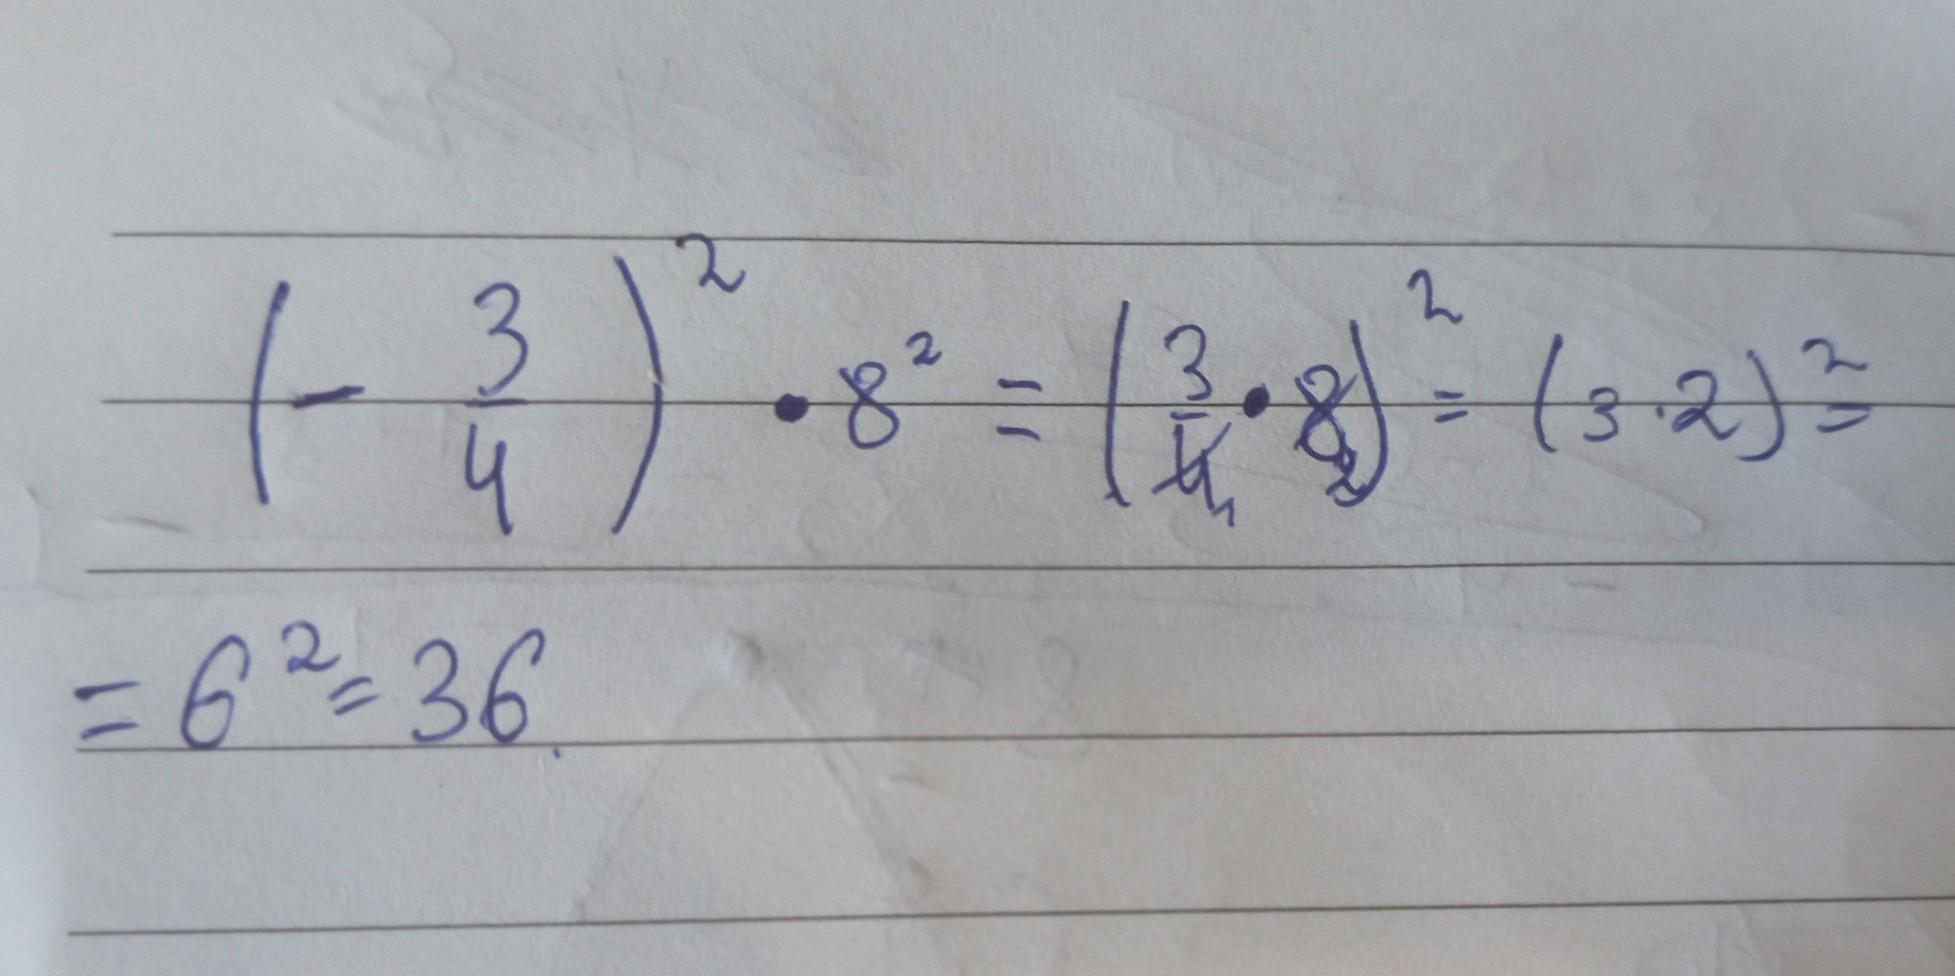 (- 3/4)² • 8² = (3/4₁ • 8₂)² = (3·2)² =
= 6² = 36.